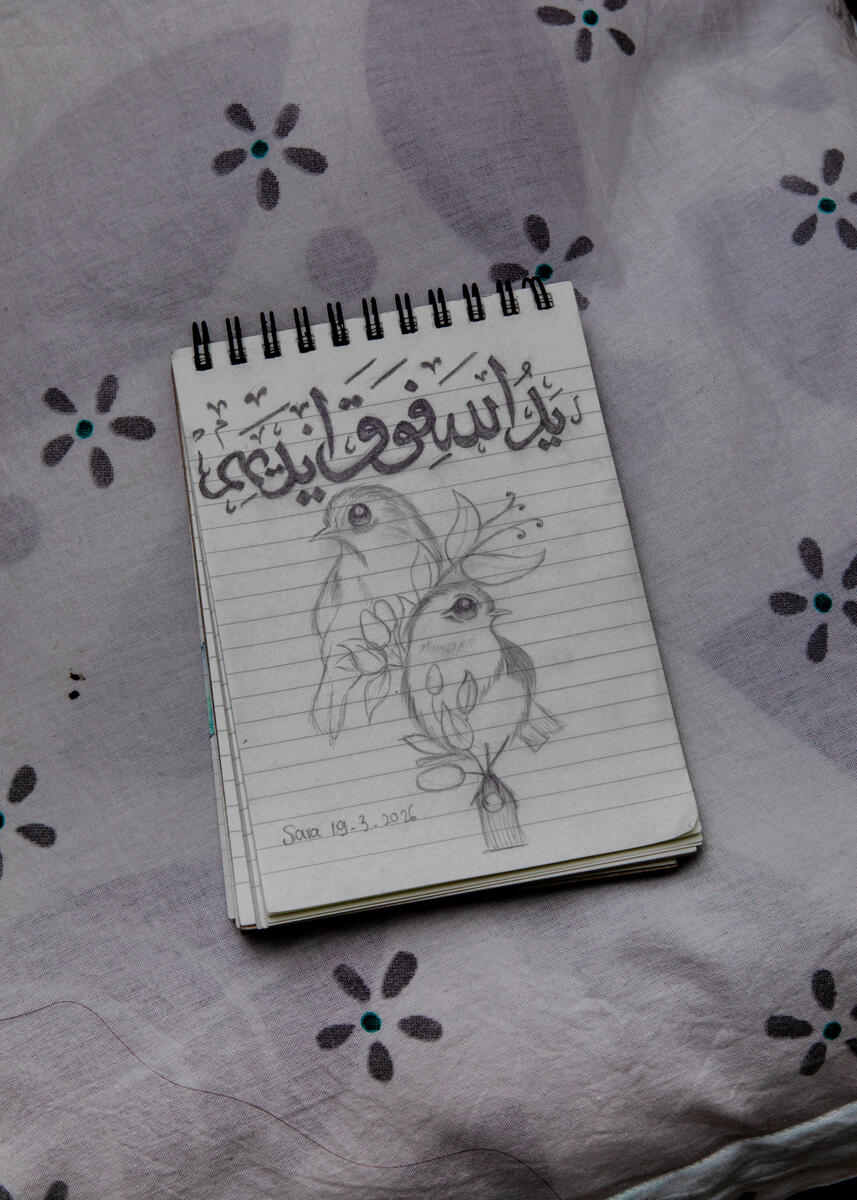 يَدُ اللهِ فَوْقَ اَيْديهِمْ
Sara 19-3.2026